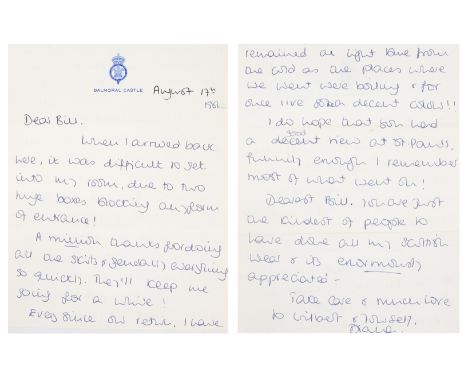 BALMORAL CASTLE
August 17th
1981.
Dear Bill.
When I arrived back
here, it was difficult to get
into my room, due to two
huge boxes blocking any form
of entrance!
A million thanks for doing
all the skirts & generally everything
so quickly. They'll keep me
going for a while!
Ever since our return, I have
remained as
the places where
we went were boiling & for
once I've got a decent colour!!
I do hope that you had
a good
decent view at St Pauls,
funnily enough I remember
most of what went on!
Dearest Bill. You are just
the kindest of people to
have done all my Scottish
wear & its enormously
appreciated -
Take care & much love
to & yourself.
Diana.